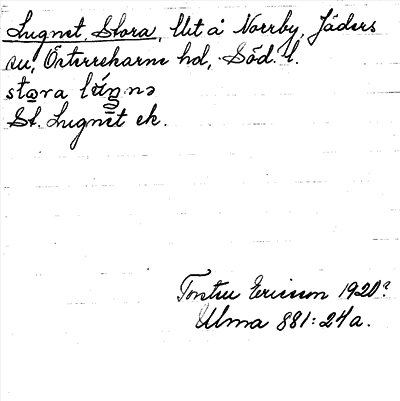 Lugnet, Stora, llt å Norrby, Jäders
sn, Österrekarne hd, Söd. l.
stora
St. Lugnet ek.
Torsten Ericsson 1920?
Ulma 881:24a.